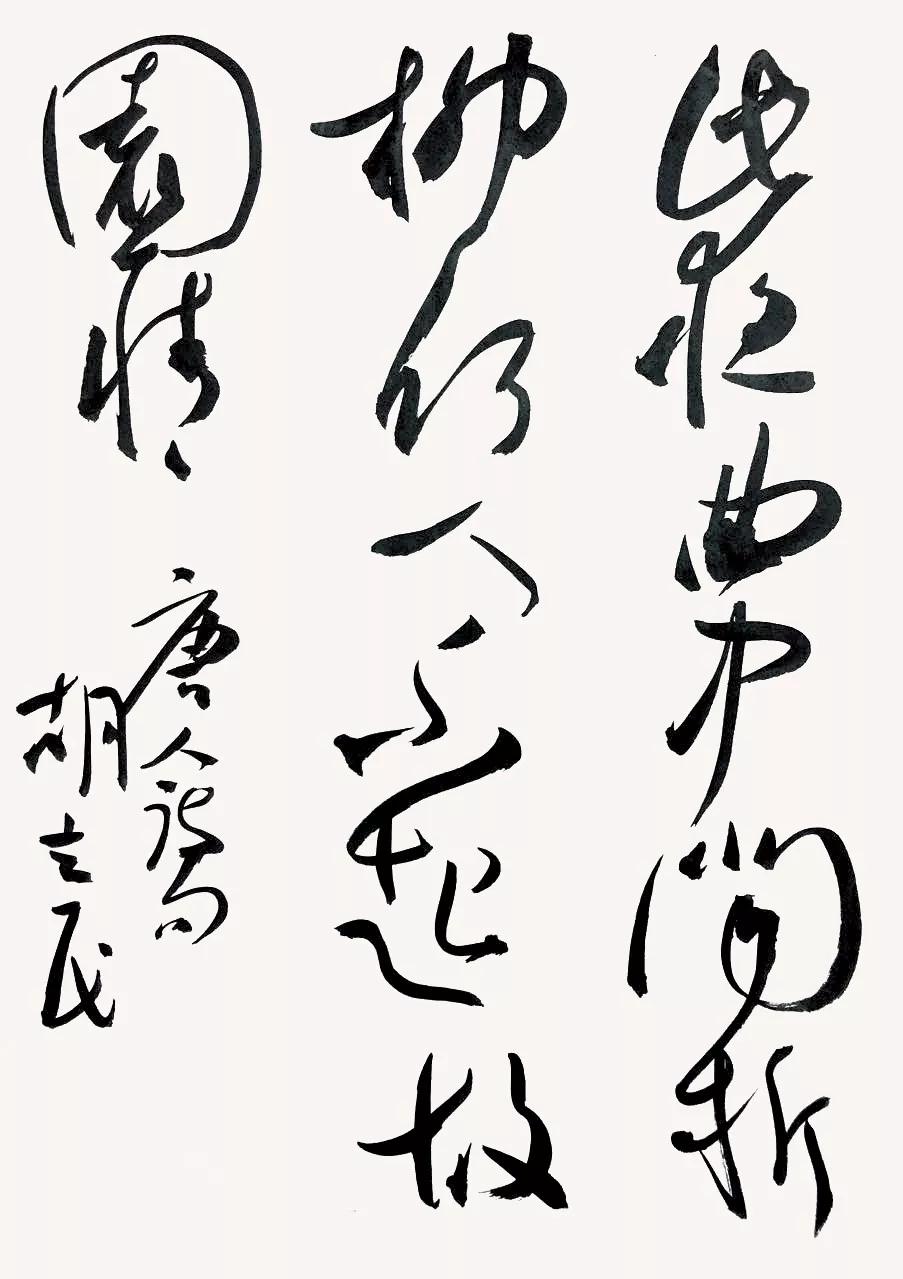 此夜曲中聞折
柳何人不起故
園情
唐人詩句
胡立民